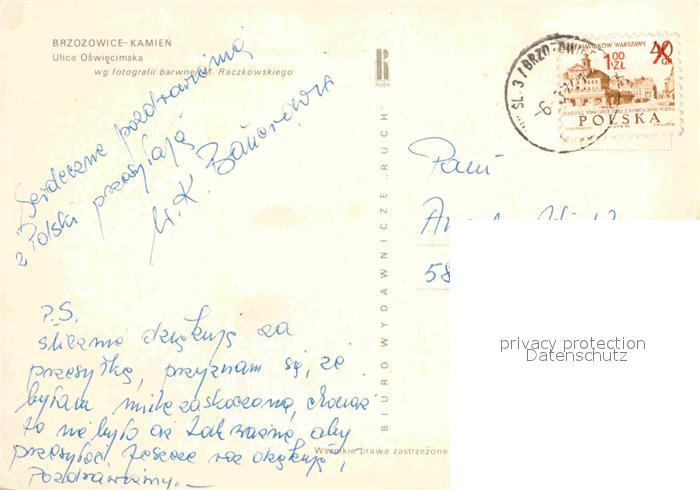 BRZOZOWICE-KAMIEŃ
Ulica Oświęcimska
wg fotografii barwnej M. Raczkowskiego
RUCH
Serdeczne pozdrowienia
z Polski przesyłają
K.
SL. 3 / BRZO
-6.
1,00
ZŁ
40
GR
POLSKA
Pani
58
BIURO WYDAWNICZE „RUCH"
Wszelkie prawa zastrzeżone
P.S.
ślicznie dziękuję za
przesyłkę, przyznam się, że
byłam mile zaskoczona, chociaż
to nie było aż tak ważne, aby
przesyłać Jeszcze raz dziękuję i
Pozdrawiamy.—
privacy protection
Datenschutz